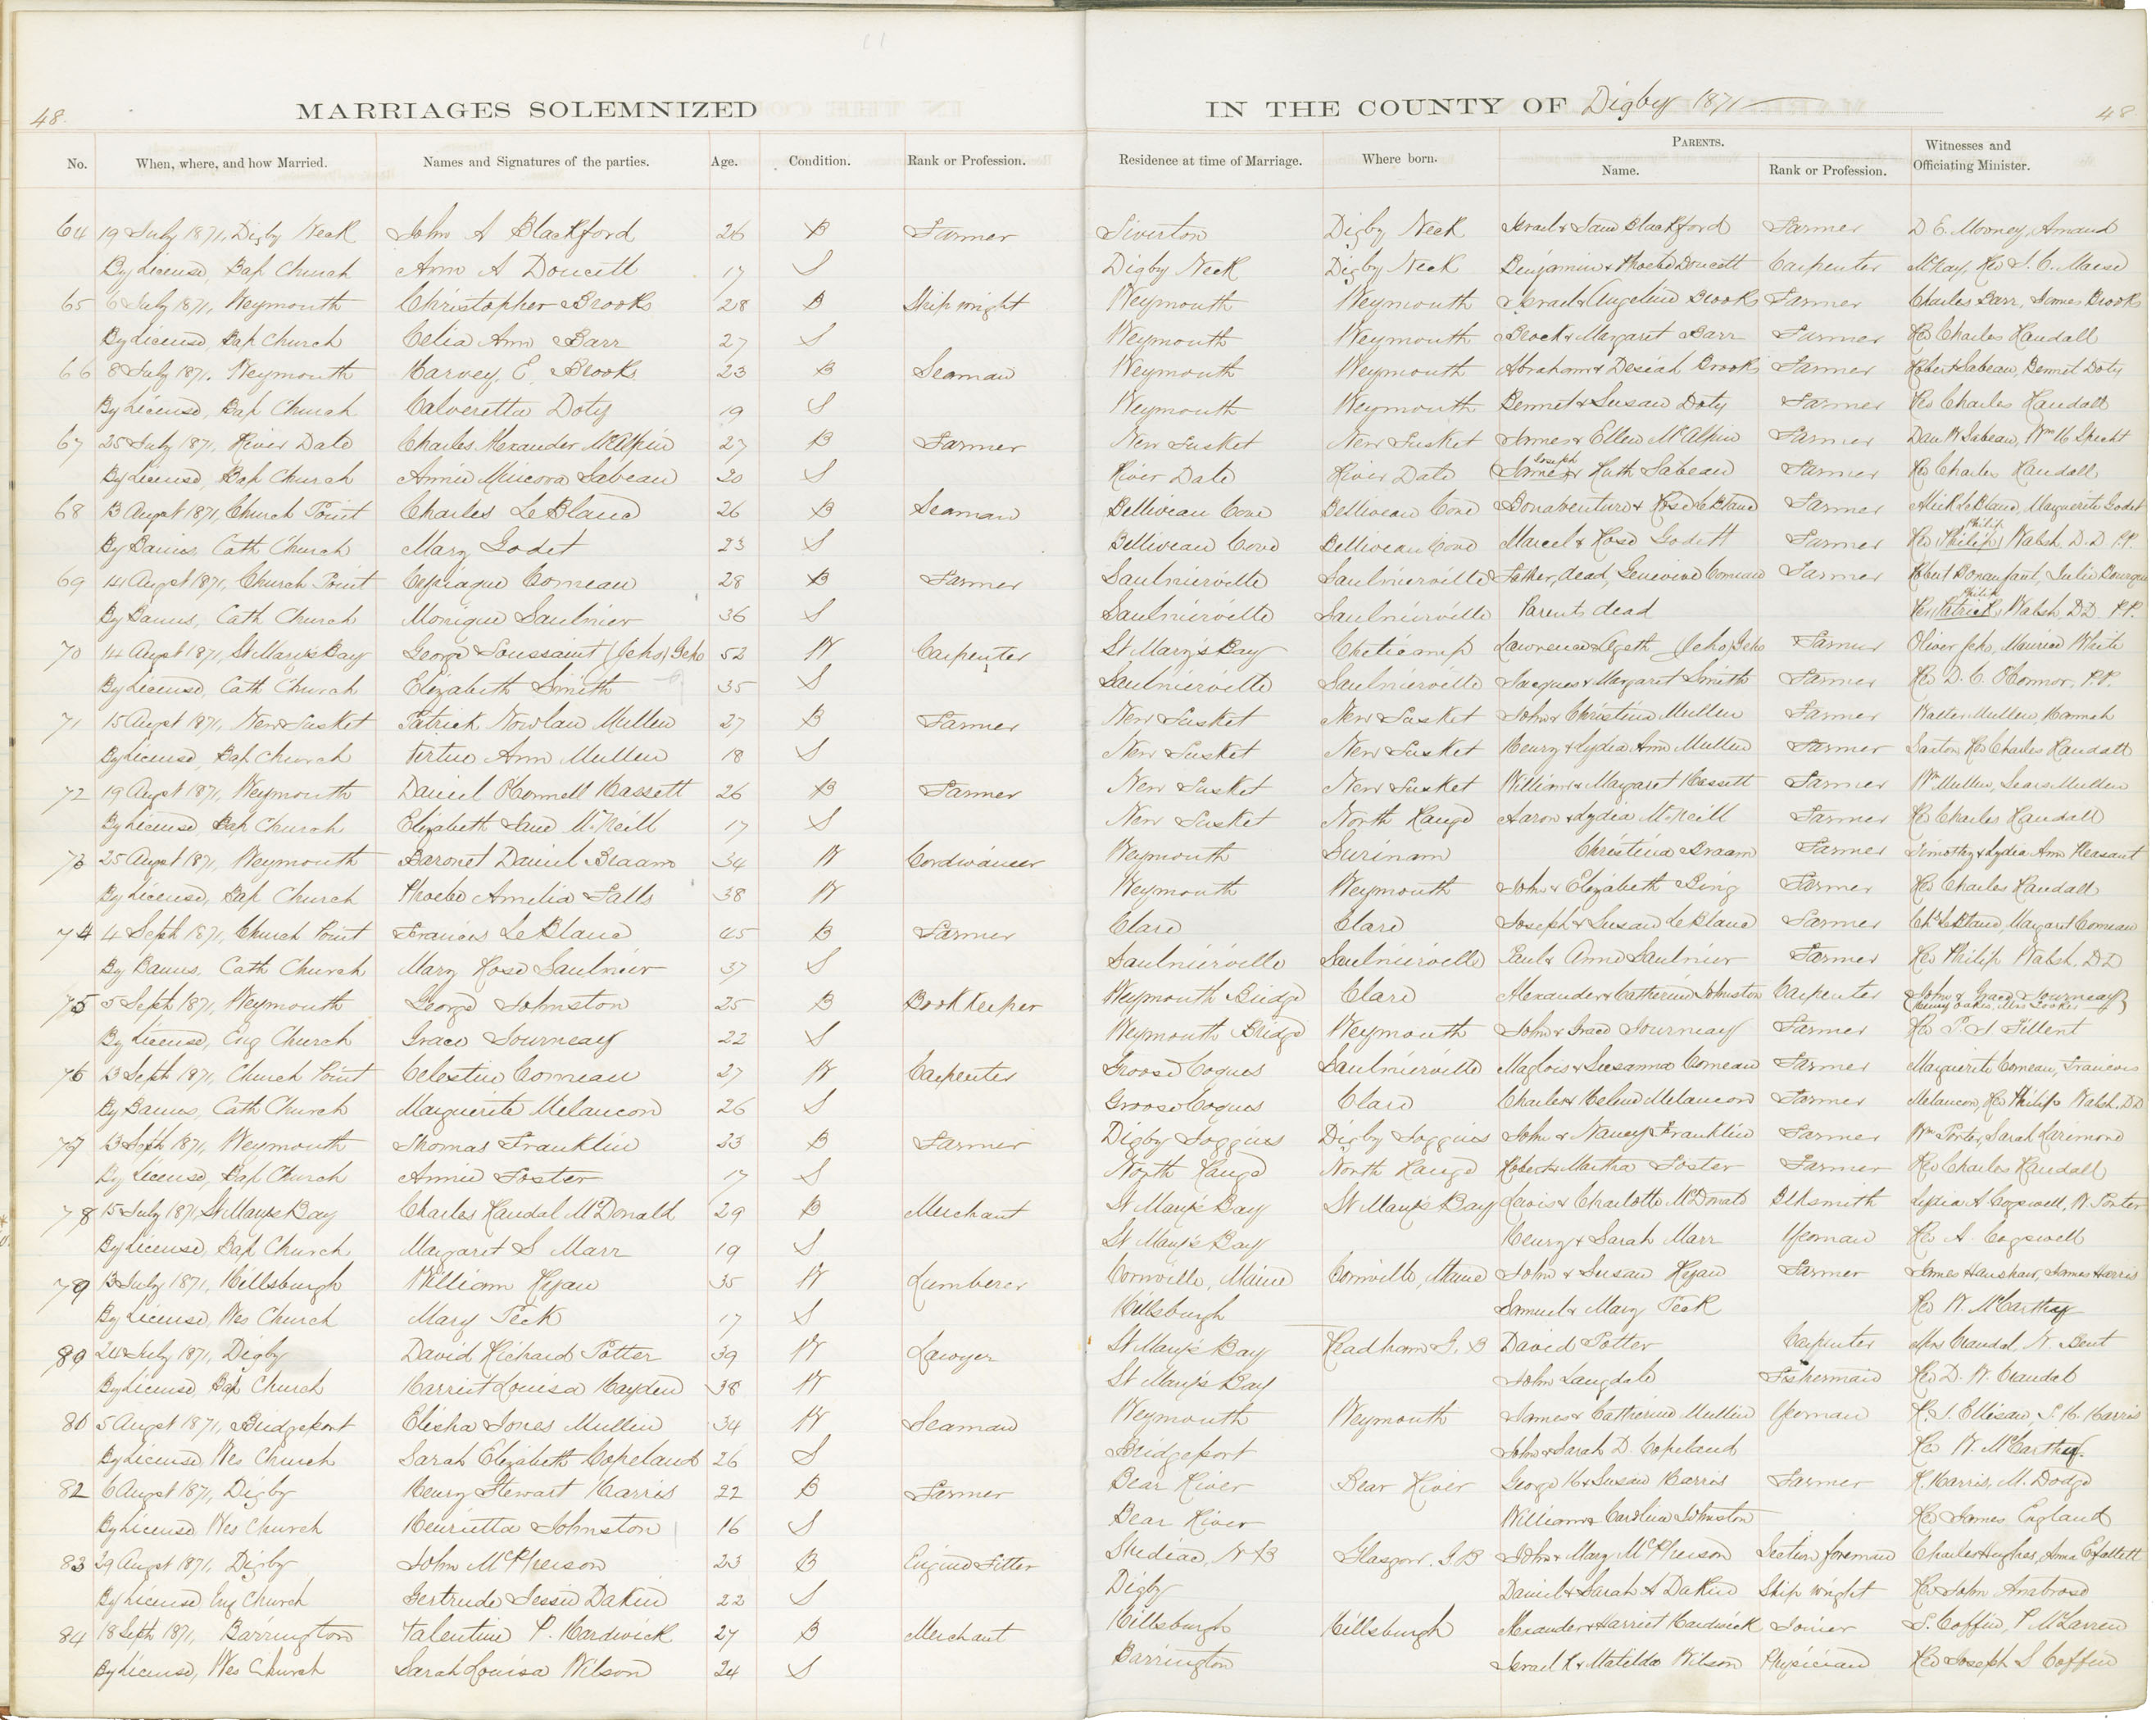 48.
MARRIAGES SOLEMNIZED
IN THE COUNTY OF Digby 1871
48
No. When, where, and how Married. Names and Signatures of the parties. Age. Condition. Rank or Profession. Residence at time of Marriage. Where born. PARENTS. Name. Rank or Profession. Witnesses and Officiating Minister.
64 19 July 1871, Digby Neck John A Blackford 26 B Farmer Tiverton Digby Neck Israel & Jane Blackford Farmer D E. Mooney, Amand
By License, Bap Church Ann A Doucett 17 S Digby Neck Digby Neck Benjamin & Phoebe Doucett Carpenter McKay, Rev J. C. Morse
65 6 July 1871, Weymouth Christopher Brooks 28 B Ship wright Weymouth Weymouth Israel & Angeline Brooks Farmer Charles Barr, James Brooks
By License, Bap Church Celia Ann Barr 27 S Weymouth Weymouth & Margaret Barr Farmer Rev Charles Randall
66 8 July 1871, Weymouth Harvey E. Brooks 23 B Seaman Weymouth Weymouth Abraham & Desiah Brooks Farmer Robert Sabean, Bennet Doty
By License, Bap Church Calveretta Doty 19 S Weymouth Weymouth Bennet & Susan Doty Farmer Rev Charles Randall
67 25 July 1871, River Dale Charles Alexander McAlpin 27 B Farmer New Tusket New Tusket James & Ellen McAlpin Farmer Danl W Sabean, Wm H Specht
By License, Bap Church Annie Minerva Sabean 20 S River Dale River Dale (James Joseph & Ruth Sabean Farmer Rev Charles Randall
68 13 August 1871, Church Point Charles LeBlanc 26 B Seaman Belliveau Cove Belliveau Cove Bonaventure & Rose LeBlanc Farmer LeBlanc, Marguerite Godet
By Banns, Cath Church Mary Godet 23 S Belliveau Cove Belliveau Cove Marcel & Rose Godett Farmer Rev (Philip) Philip Walsh D.D P.P.
69 14 August 1871, Church Point Comeau 28 B Farmer Saulnierville Saulnierville Father, dead, Genevieve Comeau Farmer Robert Bonaufant, Julie Bourque
By Banns, Cath Church Monique Saulnier 36 S Saulnierville Saulnierville Parents dead Rev Patrick Philip Walsh DD P.P.
70 14 August 1871, St Mary's Bay George Toussaint (Jeho) Geho 52 W Carpenter St Mary's Bay Cheticamp Lawrence & Ageth (Jeho) Geho Farmer Oliver Jeho, Maurice White
By License, Cath Church Elizabeth Smith 35 S Saulnierville Saulnierville Jacques & Margaret Smith Farmer Rev D. C. O'Connor, P.P.
71 15 August 1871, New Tusket Patrick Nowlan Mullen 27 B Farmer New Tusket New Tusket John & Christina Mullen Farmer Walter Mullen, Hannah
By License, Bap Church Vertue Ann Mullen 18 S New Tusket New Tusket Henry & Lydia Ann Mullen Farmer Saxton, Rev Charles Randall
72 19 August 1871, Weymouth Daniel O'Connell Hassett 26 B Farmer New Tusket New Tusket William & Margaret Hassett Farmer Wm Mullen, Sears Mullen
By License, Bap Church Elizabeth Jane McNeill 17 S New Tusket North Range Aaron & Lydia McNeill Farmer Rev Charles Randall
73 25 August 1871, Weymouth Baronet Daniel Braam 34 W Cordwainer Weymouth Surinam Christina Braam Farmer Timothy & Lydia Ann Pleasant
By License, Bap Church Phoebe Amelia Falls 38 W Weymouth Weymouth John & Elizabeth Bing Farmer Rev Charles Randall
74 4 Sept 1871, Church Point Francois LeBlanc 45 B Farmer Clare Clare Joseph & Susan LeBlanc Farmer Chs LeBlanc, Margaret Comeau
By Banns, Cath Church Mary Rose Saulnier 37 S Saulnierville Saulnierville Paul & Anne Saulnier Farmer Rev Philip Walsh, DD
75 5 Sept 1871, Weymouth George Johnston 25 B Book Keeper Weymouth Bridge Clare Alexander & Catherine Johnston Carpenter (John & Grace Journeay)
By License, Eng Church Grace Journeay 22 S Weymouth Bridge Weymouth John & Grace Journeay Farmer Rev P. J Filleul
76 13 Sept 1871, Church Point Celestin Comeau 27 W Carpenter Groose Coques Saulnierville Maglois & Susanna Comeau Farmer Marguerite Comeau, Francois
By Banns, Cath Church Marguerite Melancon 26 S Groose Coques Clare Charles & Helene Melancon Farmer Melancon, Rev Philip Walsh, DD
77 13 Sept 1871, Weymouth Thomas Franklin 23 B Farmer Digby Joggins Digby Joggins John & Nancy Franklin Farmer Wm Porter, Sarah
By License, Bap Church Annie Foster 17 S North Range North Range Robert & Martha Foster Farmer Rev Charles Randall
78 15 July 1871, St Mary's Bay Charles Randal McDonald 29 B Merchant St Mary's Bay St Mary's Bay Lewis & Charlotte McDonald Blksmith Lydia A Cogswell, W. Porter
By License, Bap Church Margaret S Marr 19 S St Mary's Bay Henry & Sarah Marr Yeoman Rev A. Cogswell
79 13 July 1871, Hillsburgh William Ryan 35 W Lumberer Cornville, Maine Cornville, Maine John & Susan Ryan Farmer James Hanshaw, James Harris
By License, Wes Church Mary Peck 17 S Hillsburgh Samuel & Mary Peck Rev W. McCarthy
80 24 July 1871, Digby David Richard Potter 39 W Lawyer St Mary's Bay Headham G. B David Potter Carpenter Mrs Crandal, N. Bent
By License Bap Church Harriet Louisa Hayden 38 W St Mary's Bay John Langdale Fisherman Rev D. W. Crandal
81 5 August 1871, Bridgeport Elisha Jones Mullin 34 W Seaman Weymouth Weymouth James & Catherine Mullin Yeoman R. J. Ellison, S. H. Harris
By License Wes Church Sarah Elizabeth Copeland 26 S Bridgeport John & Sarah D. Copeland Rev W. McCarthy.
82 6 August 1871, Digby Henry Stewart Harris 22 B Farmer Bear River Bear River George H & Susan Harris Farmer R. Harris, M. Dodge
By License Wes Church Henrietta Johnston 16 S Bear River William & Caroline Johnston Rev James England
83 29 August 1871, Digby John McPherson 23 B Engine Fitter Shediac, N B Glasgow. G B John & Mary McPherson Section foreman Charles Hughes, Anna E
By License Eng Church Gertrude Jessie Dakin 22 S Digby Daniel & Sarah A Dakin Ship wright Rev John Ambrose
84 18 Sept 1871, Barrington Valentine P. Hardwick 27 B Merchant Hillsburgh Hillsburgh Alexander & Harriet Hardwick Joiner S. Coffin, P McLarren
By License, Wes Church Sarah Louisa Wilson 24 S Barrington Israel K & Matilda Wilson Physician Rev Joseph S Coffin